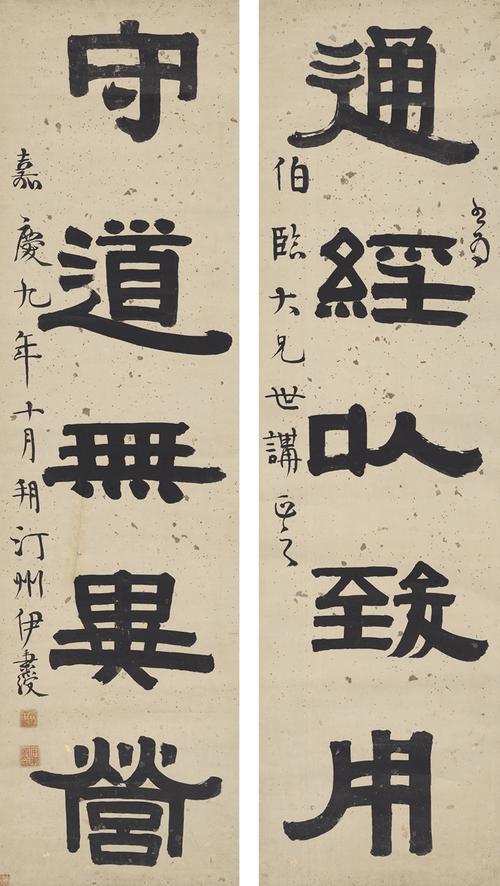 通經以致用
書為
伯臨大兄世講正之
守道無異營
嘉慶九年十月朔汀州伊秉綬